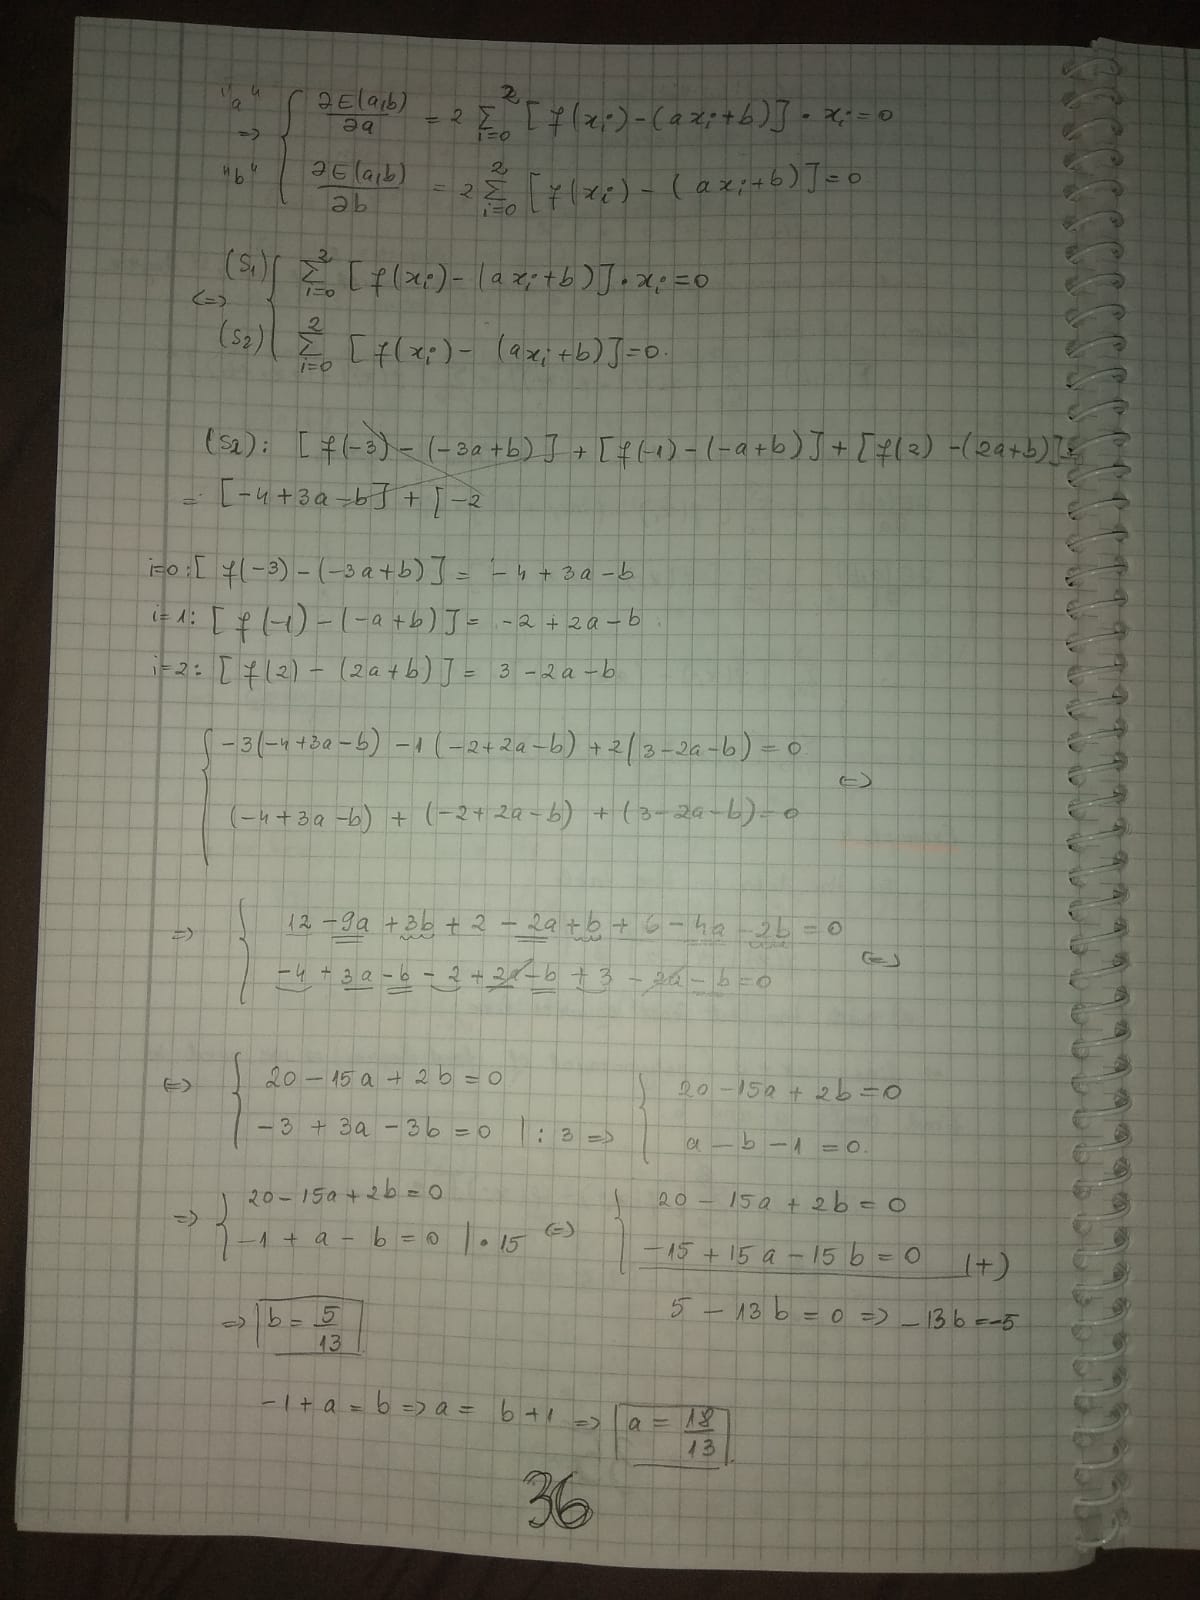 "a" ∂E(a,b)/∂a = 2 Σ_{i=0}^{2} [f(xᵢ)-(axᵢ+b)]·xᵢ=0
=>
"b" ∂E(a,b)/∂b = 2 Σ_{i=0}^{2} [f(xᵢ) - (axᵢ+b)]=0
(S₁) Σ_{i=0}^{2} [f(xᵢ)-(axᵢ+b)]·xᵢ=0
<=>
(S₂) Σ_{i=0}^{2} [f(xᵢ) - (axᵢ+b)]=0.
(S₂): [f(-3) - (-3a+b)] + [f(-1)-(-a+b)] + [f(2) -(2a+b)]=
= [-4+3a-b] + [-2
i=0: [f(-3)-(-3a+b)] = -4+3a-b
i=1: [f(-1)-(-a+b)] = -2+2a-b
i=2: [f(2)-(2a+b)] = 3-2a-b
{ -3(-4+3a-b) -1(-2+2a-b) +2(3-2a-b) = 0
<=>
(-4+3a-b) + (-2+2a-b) + (3-2a-b)=0
=> { 12-9a+3b+2-2a+b+6-4a-2b=0
<=>
-4+3a-b-2+2a-b+3-2a-b=0
<=> { 20-15a+2b=0 { 20-15a+2b=0
-3+3a-3b=0 |:3 => a-b-1=0.
=> { 20-15a+2b=0 { 20-15a+2b=0
-1+a-b=0 |·15 <=> -15+15a-15b=0 (+)
=> b = 5/13 5-13b=0 => -13b=-5
-1+a=b => a= b+1 => a = 18/13
36